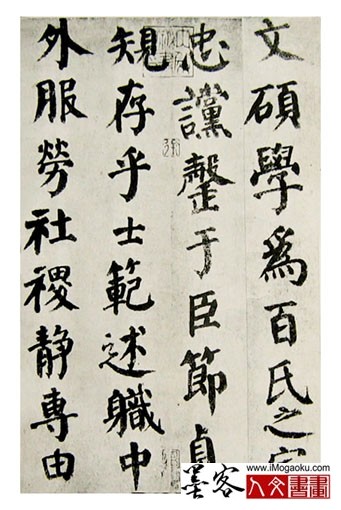 文碩學爲百氏之宗
忠讜罄于臣節貞
規存乎士範述職中
外服勞社稷靜專由
墨客
www.iMogaoku.com
人文書畫